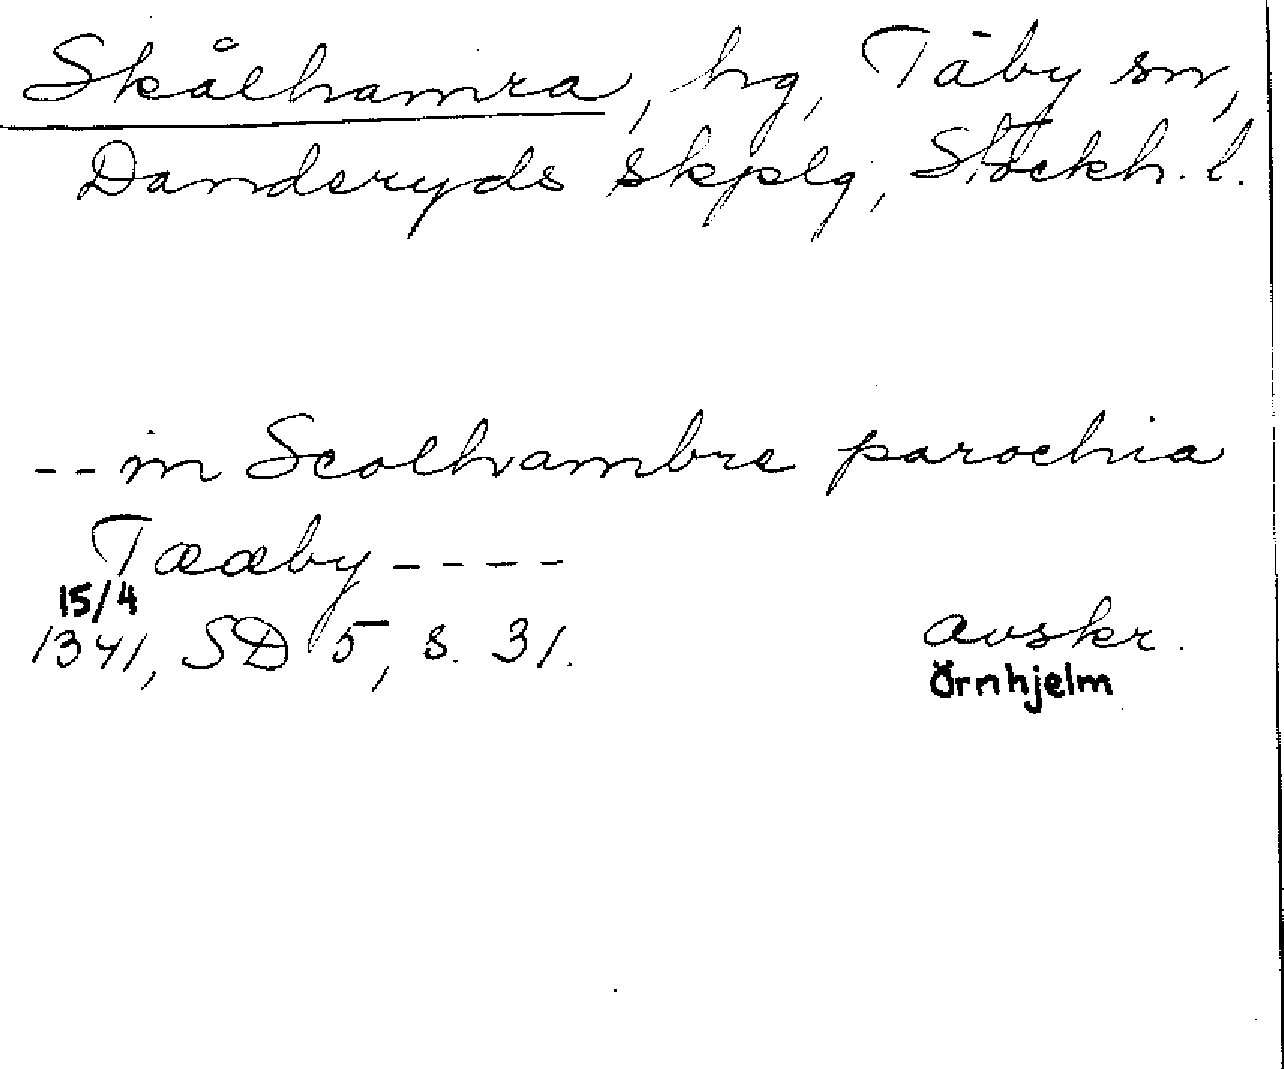 Skålhamra, hg, Täby sn,
Danderyds skplg, Stockh. l.
-- in Scolhambre parochia
Tææby ----
15/4
1341, SD 5, s. 31.
avskr.
Örnhjelm